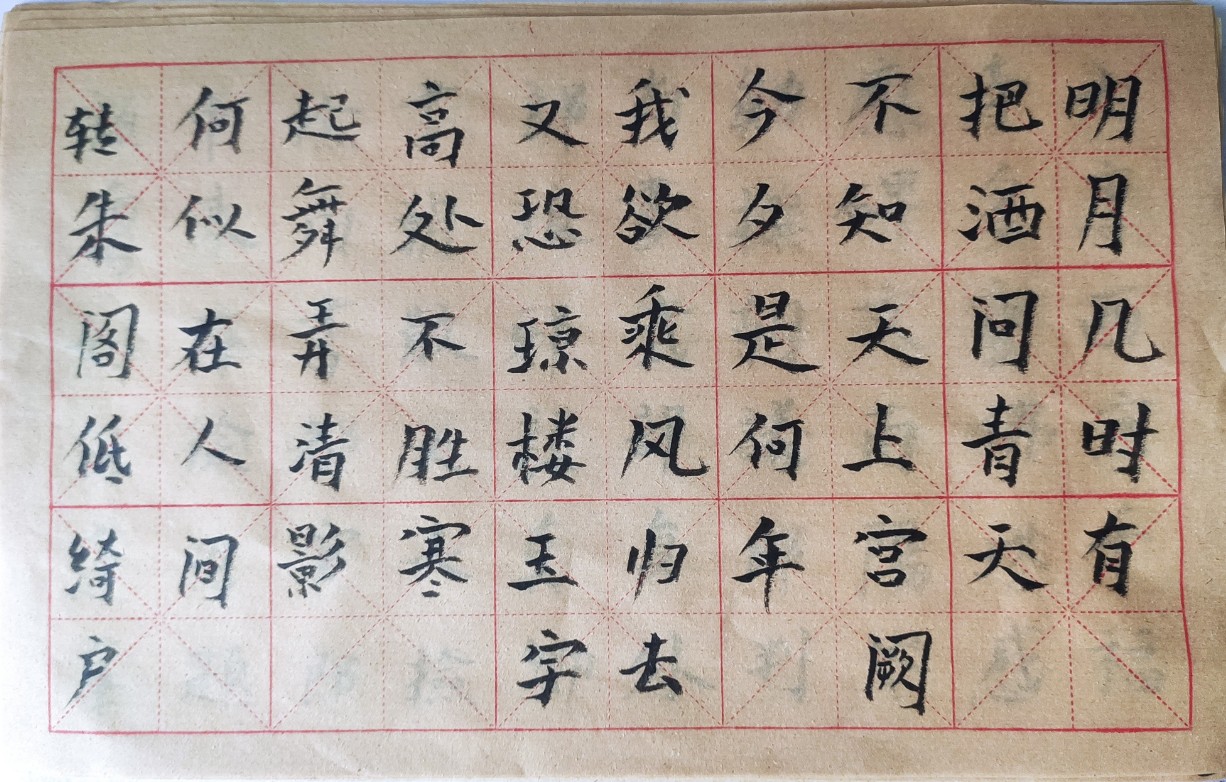 明月几时有
把酒问青天
不知天上宫阙
今夕是何年
我欲乘风归去
又恐琼楼玉宇
高处不胜寒
起舞弄清影
何似在人间
转朱阁低绮户